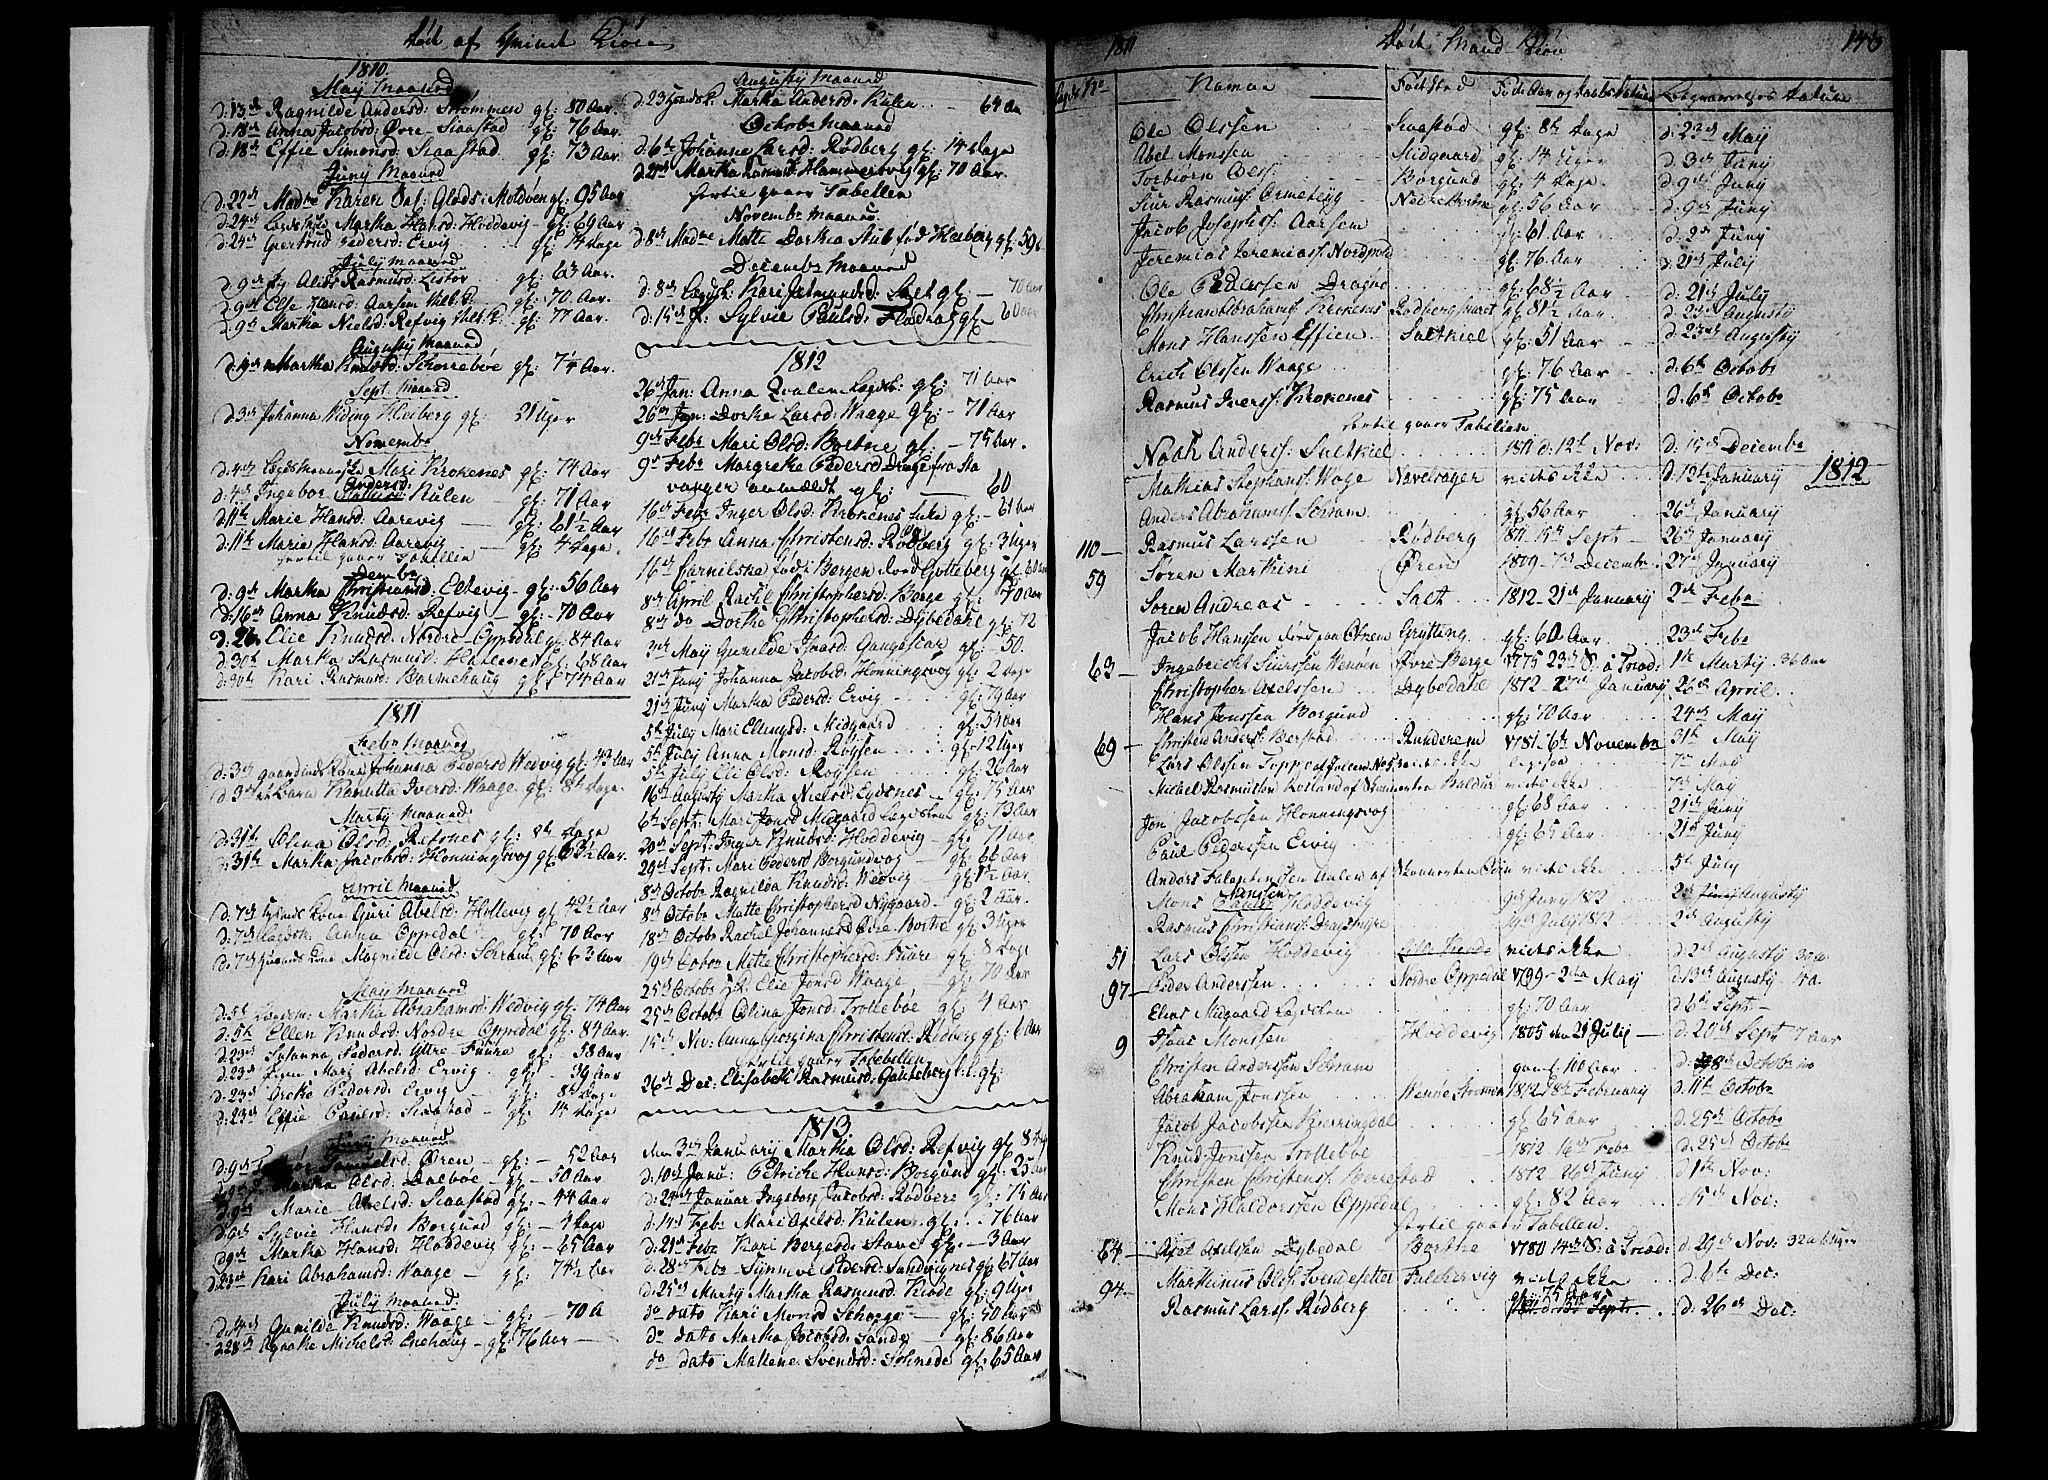 Død af Qvinde Kiøn
1810.
Maij Maaned
d: 13de Ragnilde Andersd: Strømmen gl: 80 Aar
d: 18de Anna Jacobsd: Øvre Staastad gl: 76 Aar
d: 18de Effie Simonsd: Staastad gl: 73 Aar
Junij Maaned
d: 22de Madme Karen Glads: Moldøen gl: 95 Aar
d: 24de Lægdsk: Martha Hansd: Hoddevig gl: 69 Aar
d: 24de Giertrud Pedersd: Ervig gl: 14 dage
Julij Maaned
d: 9de Alis Rasmusd: Listou gl: 63 Aar.
d: 9de Else Hansd: Aarsem gl: 70. Aar.
d: 9de Martha Nielsd: Refvig gl: 77 Aar.
Augustij Maaned
d: 19de Martha Knudsd: Schorrebøe gl: 74 Aar.
Sept: Maaned
d: 3de Johanna Widing Hloeberg gl: 21 Uger
Novembr
d: 4de Mari Krokenes gl: 74 Aar
d: 4de Ingebor Andersd: Kulen gl: 71 Aar
d: 11te Marie Hansd: Aarevig gl: 61½ Aar
d: 11te Marie Hansd: Aarevig gl: 4 dage.
hertil gaaer Tabellen
Decembr
d: 9de Martha Christiansd: Eltevig gl: 56 Aar
d: 16de Anna Knudsd: Refvig gl: 70 Aar
d. 26 Elie Knudsd: Nordre Oppedal gl: 84 Aar
d: 30te Martha Rasmusd: Hatlenes gl: 68 Aar
d: 30te Kari Rasmusd: Barmehaug gl: 74 Aar
1811
Febr: Maaned
d: 3de gaardmds Kone Johanna Pedersd Wedvig gl: 43 Aar
d: 3de et barn Kanutta Iversd: Waage gl: 8te dage.
Martij Maaned.
d: 31te Olina Olsd: Refsnes gl: 8te dage
d: 31te Martha Jacobsd: Honningsvog gl: 63½ Aar.
April Maaned
d: 7de Kone Guri Abelsd: Hollevig gl: 42½ Aar
d: 7de Lægdsk: Anna Oppedal gl: 70 Aar
d: 7de Kone Magnilde Olsd: Schram gl: 63 Aar
Maij Maaned
d: 5te Martha Abrahamsd: Wedvig gl: 74 Aar
d: 5te Ellen Knudsd: Nordre Oppedal gl: 84 Aar.
d: 23de Susanna Pedersd: Ÿttre Fuure gl: 58 Aar
d: 23de Mari Abelsd: Ervig gl: 39 Aar
d: 23de Dorthe Pedersd: Ervig gl: 8te Dage
d: 23de Effie Paulsd: Staastad gl: 14 dage
Junij Maaned
d: 9de Samuelsd: Øren gl: 52 Aar
d: 9de Martha Olsd: Dalboe gl: 50 Aar
d: 9de Marie Abelsd: Staastad gl: 44 Aar
d: 9de Sylvie Hansd: Borgund gl: 4 dage
d: 9de Martha Hansd: Hoddevig gl: 65 Aar
d: 23de Kari Abrahamsd: Waage gl: 74½ Aar
Julij Maaned:
d: 14de Gunilde Knudsd: Waage gl: 70 A
d 28de Agathe Michelsd: Enehaug gl: 76 Aar
Augustij Maaned
d: 23 Martha Andersd: Kulen 64 Aar
Octobr Maaned
d. 6te Johanne Larsd: Rødberg gl: 14 dage
d. 24de Martha Rasmusd: Hammersvig gl: 70 Aar.
hertil gaaer Tabellen
Novembr Maaned
d: 8de Madme Mette Dorthea Stub fød Heiberg gl: 59
Decembr Maaned
d: 8de Lægdsk: Kari Jetmundsd: Salt gl: 70 Aar
d: 15de Sylvie Paulsd: Flodra gl: 60 Aar
1812
26de Jan: Anna Hvalen Lægdsk: gl: 71 Aar
26de Jan: Dorthe Larsd: Waage gl: 71 Aar
9de Febr Mari Olsd: Bortne gl: 75 Aar.
9de Febr Margrethe Pedersd Drage fra Sta
vanger anmældt gl: 60
16de Febr Inger Olsd: Krokenes gl: 61 Aar
16de Febr Anna Christensd: Rødberg gl: 3 Uger
16de Cornilske fød i Bergen Gotteberg gl: 60 Aar
8de April Rachel Christophersd: Borge gl: 70 Aar
8de do Dorthe Christophersd: Dybedahl gl: 72
3de Maij Gunilde Ivarsd: Gangeskar gl: 50.
21de Junij Johanna Jacobsd: Honningsvog gl: 2 dage
21de Junij Martha Pedersd: Ervig gl: 79 Aar
5te Julij Mari Ellingsd: Midgaard gl: 51 Aar
5te Julij Anna Monsd: Røÿsen gl: 12 Uger
5te Julij Eli Olsd: Røÿsen gl: 26 Aar
16de Augustij Martha Nielsd: Eydsnes gl: 75 Aar
6te Sept: Mari Jonsd Midgaard Lægdslem gl: 73 Aar
20de Sept: Inger Knudsd: Hoddevig gl: 71 Aar
29de Sept: Mari Pedersd Borgundvog gl: 66 Aar
8de Octobr Ragnilda Knudsd: Wedvig gl: 1½ Aar.
8de Octobr Mette Christophersd Nygaard gl: 2 Aar.
18de Octobr Rachel Johannesd: Øvre Bortne gl: 3 Uger
19de Octobr Mette Christophersd: Fuure gl: 8 dage
25de Octobr Elie Jonsd Waage gl: 70 Aar
25de Octobr Olina Jonsd: Trolleboe gl: 4 Aar
15de Nov: Anna Giorgina Christensd: Rødberg gl: 6 Aar
hertil gaaer Tabellen
26de Dec: Elisabeth Rasmusd: Gouteberg gl:
1813
den 3de Januarij Martha Olsd: Refvig gl 84
d. 10de Janu: Petriche Hansd: Borgund gl: 25 Aar
d. 24de Januar Ingeborg Jacobsd: Rødberg gl: 75 Aar
d: 14de Febr Mari Axelsd: Kulen gl: 76 Aar
d: 21de Febr Kari Bergesd: Stave gl: 3 Aar
d: 28de Febr Synneve Pedersd: Sandvignes gl 67 Aar
d: 25de Martij Martha Rasmusd: Kiøde gl: 9 Uger
do dato Kari Monsd Schogge gl: 50 Aar
do dato Martha Jacobsd: Sande gl: 86 Aar
do dato Mallene Svendsd: Solmede gl: 65 Aar
1811 Død Mand Kiøn 143
Navne Fødested Føde Aar og Daabs Datum Begravelses Datum
Ole Olssen Staastad gl: 8te Dage d: 23de Maij
Abel Monssen Midgaard gl: 14 Uger d: 3de Junij
Torbiørn Olss: Borgund gl: 4 dage d: 9de Junij
Siur Rasmuss Ormeteig Nedre Bortne gl: 56 Aar d: 9de Junij
Jacob Josephss: Aarsem gl: 61 Aar d: 2de Junij
Jeremias Jeremiass: Nordpold gl: 76 Aar d: 21de Julij
Ole Pederssen Dragsø gl: 68½ Aar d: 21de Julij
Christian Abrahams Krokenes Rødberghuset gl: 81½ Aar. d: 23de Augustij
Mons Hanssen Effien Saltkiel gl: 51 Aar d: 23de Augustij
Erich Olssen Waage gl: 76 Aar d: 6te Octobr
Rasmus Iverss: Krokenes gl: 75 Aar d: 6te Octobr
hertil gaaer Tabellen
Noah Anderss: Saltkiel 1811 d: 12te Nov: d: 15de Decembr
Mathias Stephanss: Wage Navelsager vides ikke d: 19de Januarij 1812
Anders Abrahamss: Schram gl: 56 Aar 26de Januarij
110 Rasmus Larssen Rødberg 1811 15de Sept 26de Januarij
59 Søren Martini Øren 1809 7de Decembr 27de Januarij
Søren Andreas Salt 1812 21de Januarij 2de Febr
Jacob Hanssen Grytting gl: 60 Aar 23de Febr
63 Ingebricht Siurssen Wenøen Øvre Berge 1775 23de S. à Trind: 1te Martij 36 Aar
Christopher Axelssen Dybedahl 1812 27de Januarij 26de April
Hans Jonssen Borgund gl: 70 Aar 24de Maij
69 Christen Anderss: Berstad Runderem 1781 6te Novembr 31te Maij
Lars Olssen Toppe vides ikke 7de Maij
Michel Rasmussen vides ikke 7de Maij
Jon Jacobssen Honningsvog gl: 68 Aar 21de Junij
Paul Pederssen Ervig gl: 65 Aar 21de Junij
Anders vides ikke 5te Julij
Mons Hansen Hoddevig Junij 1812 2de Augustij
Rasmus Christians: Dragsmyre Julij 1812 2de Augustij
51 Lars Olssen Hoddevig vides ikke d: 2de Augustij 30
97 Peder Anderssen Nordre Oppedal 1799 2den Maij d: 13de Augustij
Elias Midgaard Lægdslem gl: 70 Aar d: 6te Sept:
9 Isaac Monssen Hoddevig 1805 den 21 Julij d: 20de Sept 7 Aar
Christen Anderssen Schram gl. 100 Aar d: 8de Octobr
Abraham Jonssen Wenøe Strømmen 1812 8de Februarij d: 11te Octobr
Jacob Jacobssen Kierringdal gl: 65 Aar d: 25de Octobr
Knud Jonssen Trolleboe 1812 16de Febr d: 25de Octobr
Christen Christenss: Berrestad 1812 26de Junij d: 1te Nov:
Mons Haldorssen Oppedal gl: 82 Aar 15de Nov:
hertil gaaer Tabellen.
64 Axel Axelssen Dybedal Borthe 1780 14de S. à Trind: d: 29de Nov: 32
94 Marthinus Olss: Svendsetter Falchervig vides ikke d: 6te Dec:
Rasmus Larss: Rødberg gl: 75 Aar 1811 d: 15de Sept: d: 26de Dec: